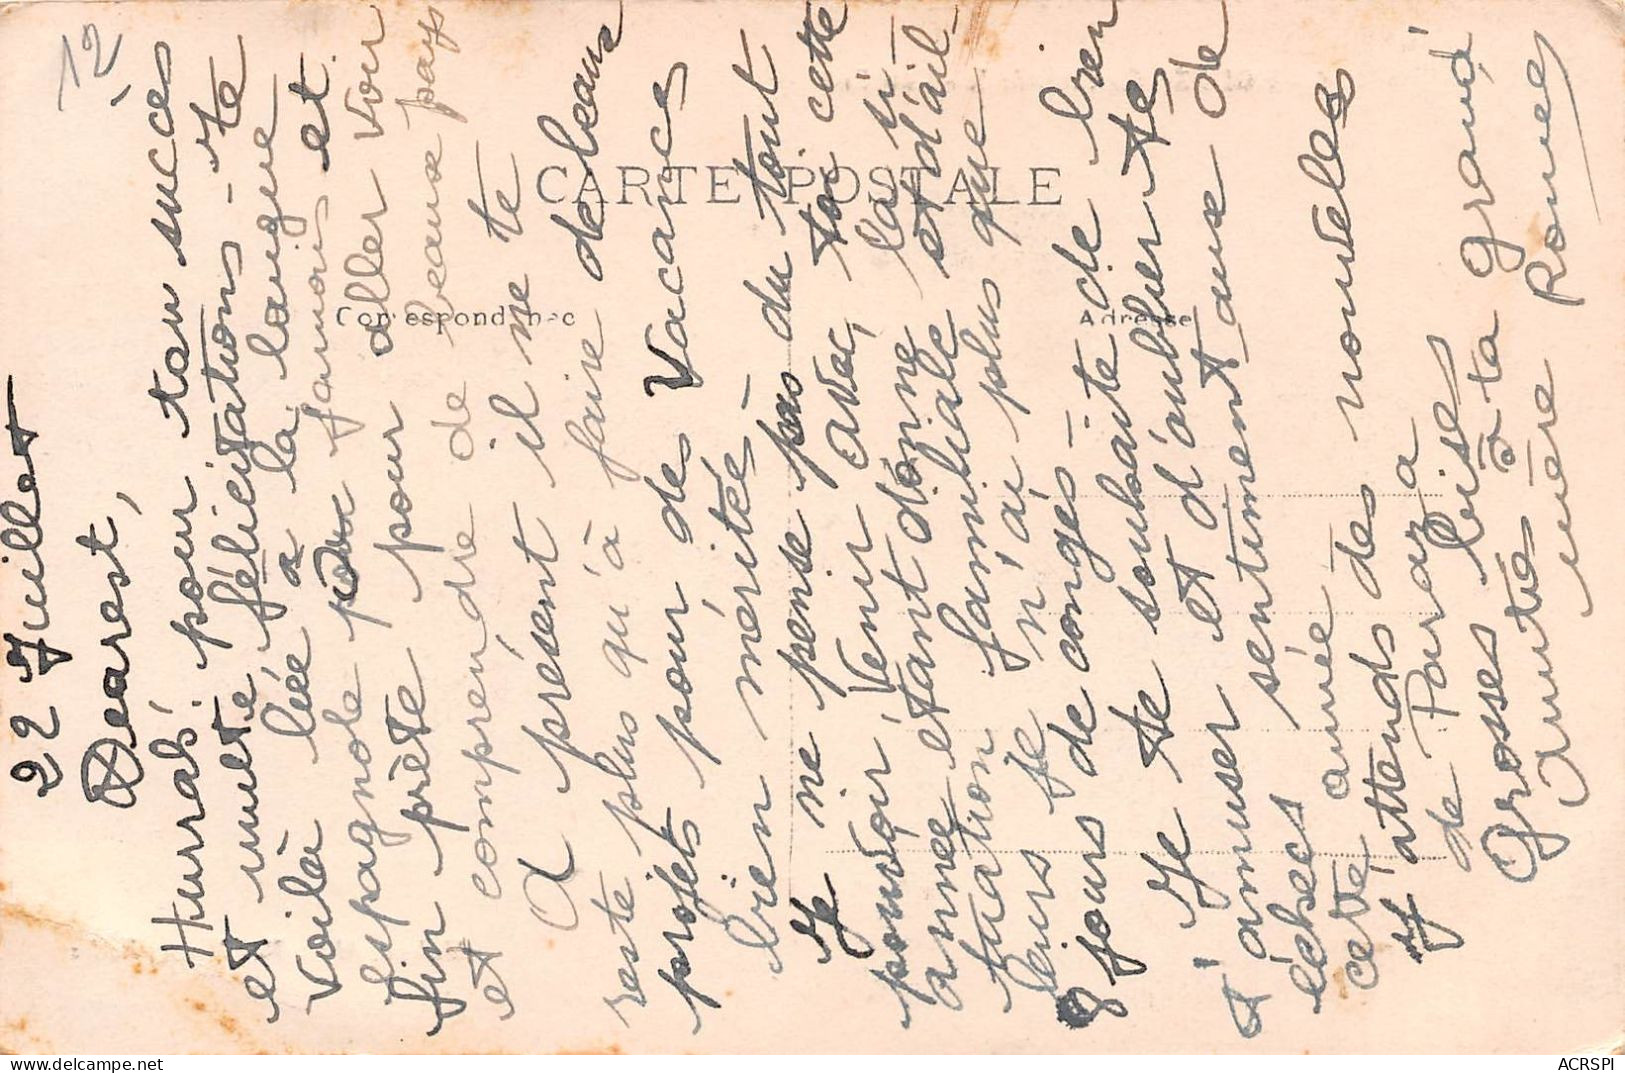 12
22 Juillet
Dearest,
Hurrah! pour ton succès
et multe félicitations - Te
voilà liée à la langue
Espagnole pour jamais et
fin prête pour aller voir
et comprendre de beaux pays
A présent il ne te
reste plus qu'à faire de beaux
projets pour des vacances
bien mérité -
Je ne pense pas du tout
pouvoir venir avec toi cette
année étant donné la si-
tuation familiale et d'ail-
leurs je n'ai plus que
8 jours de congés -
Je te souhaite de bien
t'amuser et d'oublier tes
échecs sentimentaux de
cette année
J'attends des nouvelles
de Paraza
Grosses bises
Amitiés à ta grand
mère Renée
CARTE POSTALE
Correspondance
Adresse
ACRSPI